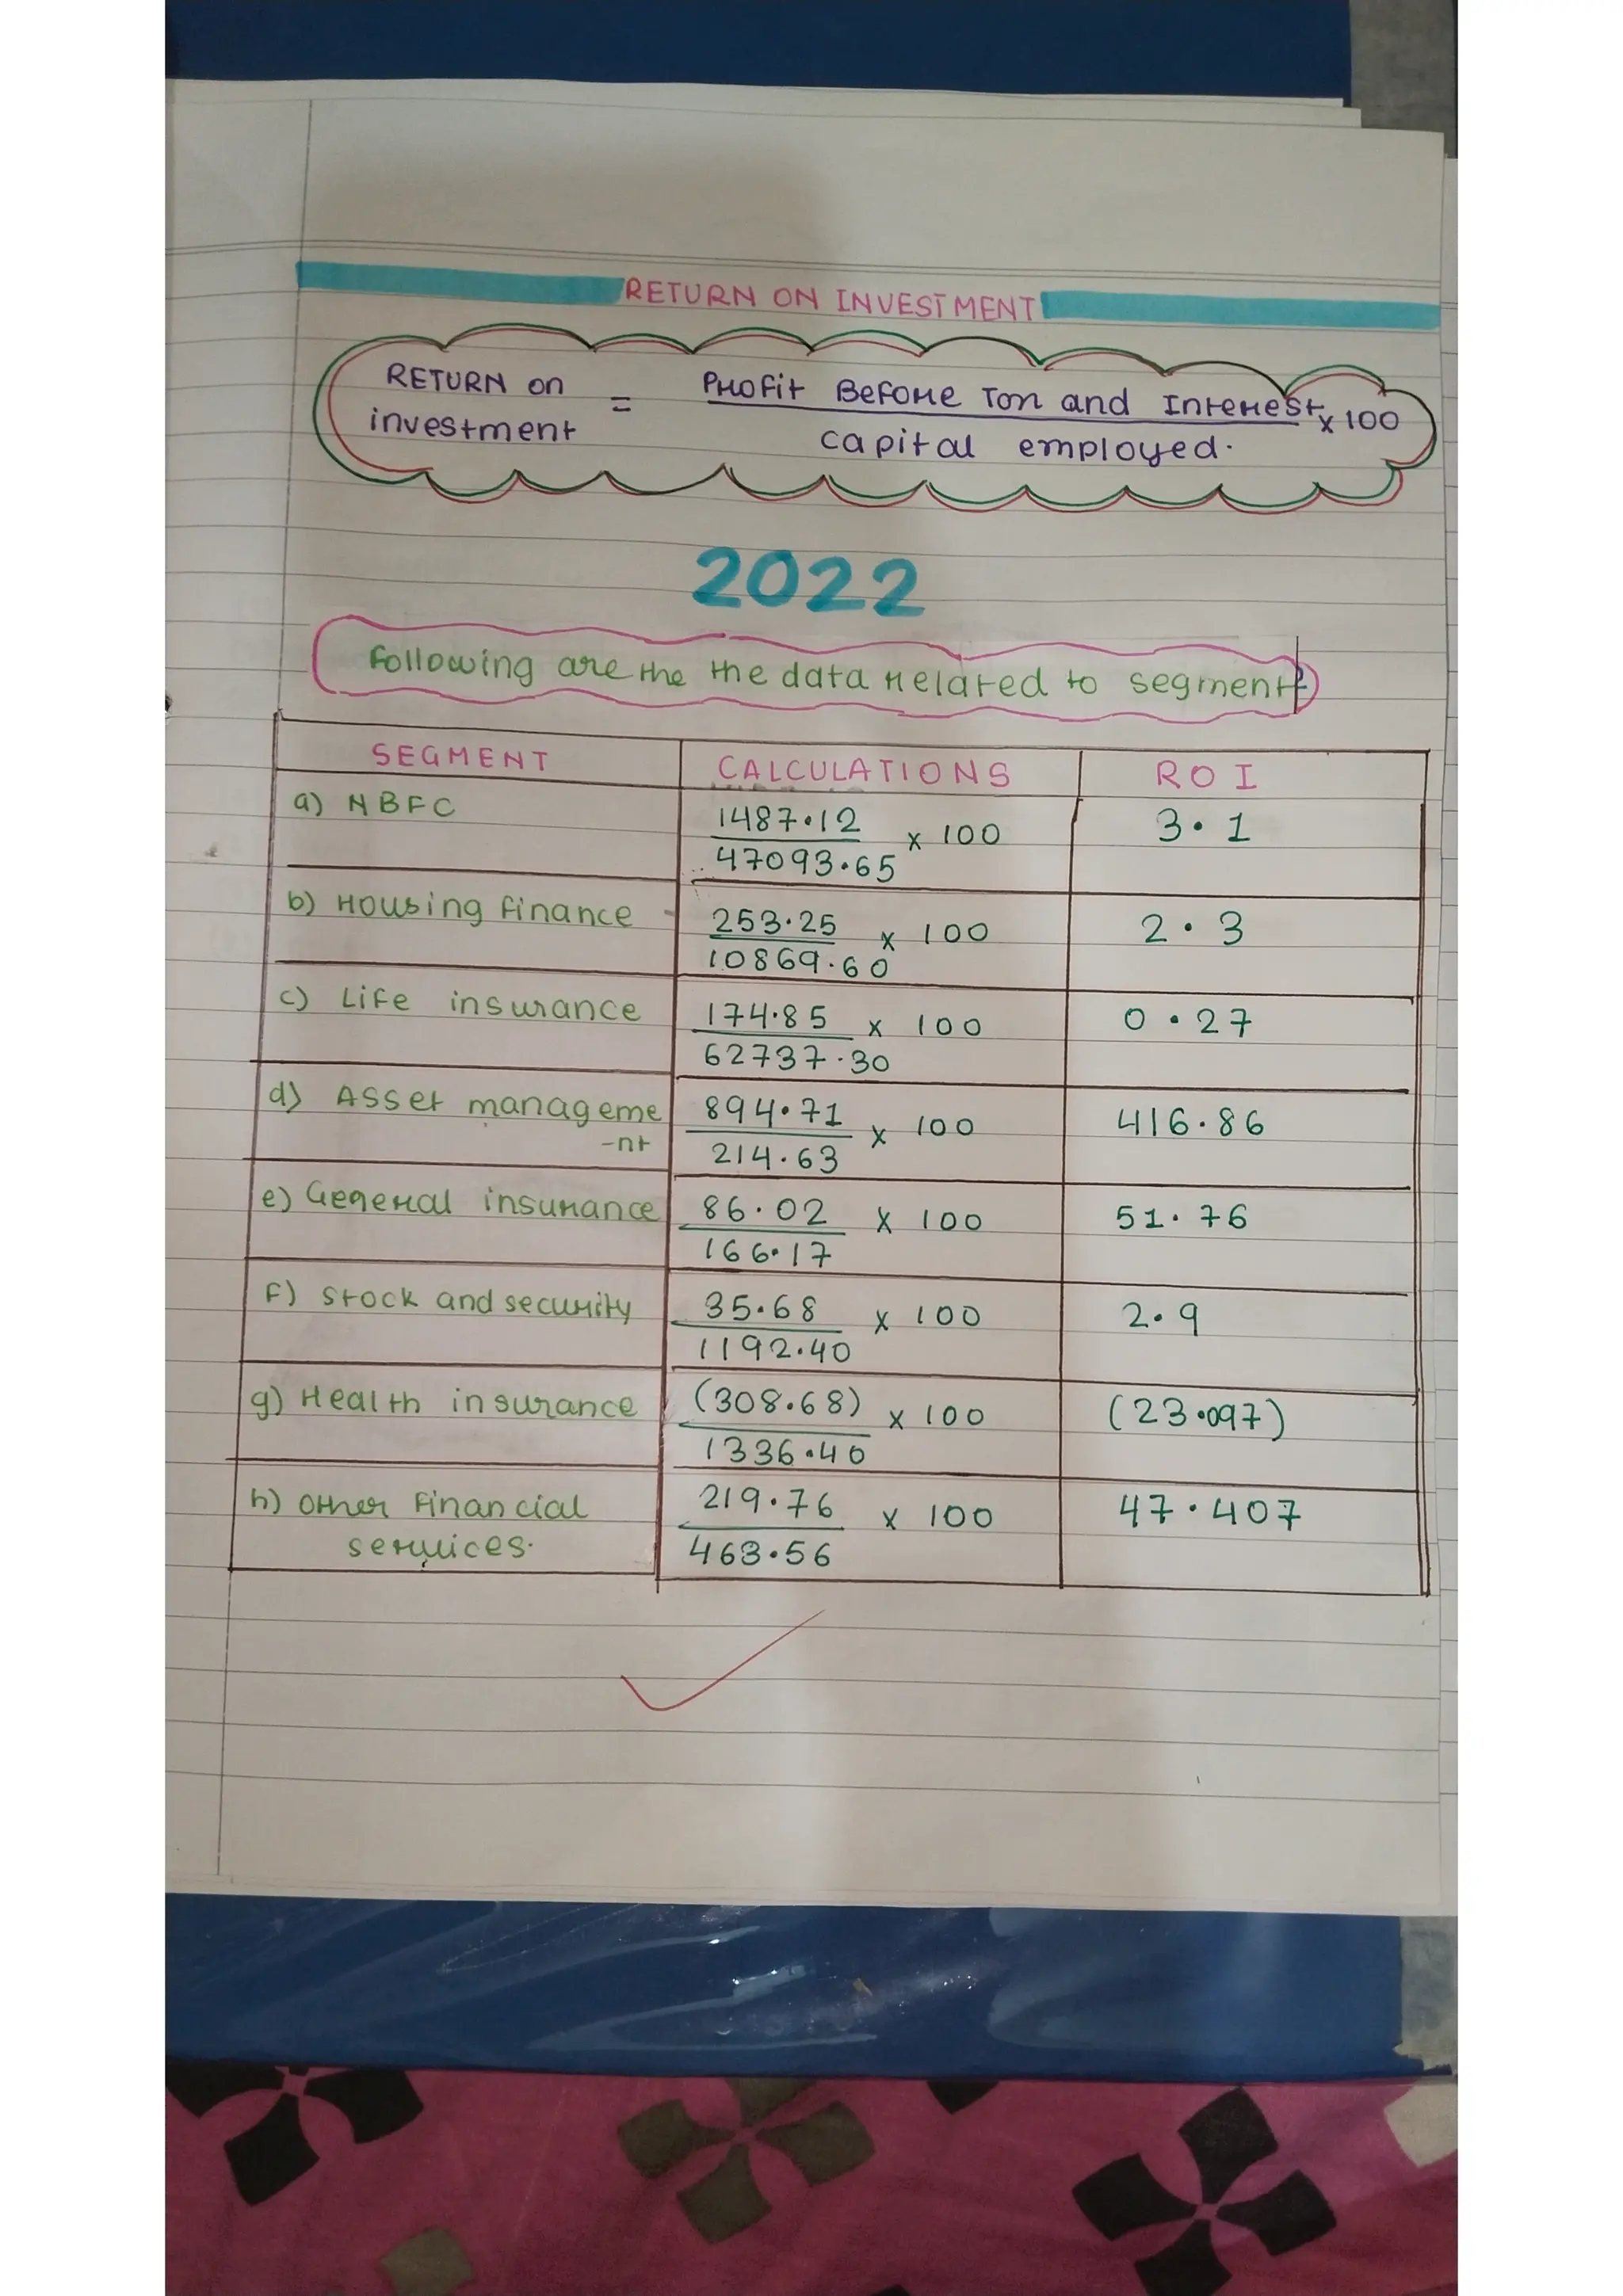 RETURN ON INVESTMENT
RETURN on investment = Profit Before Tax and Interest x 100
capital employed.
2022
Following are the the data related to segment
SEGMENT CALCULATIONS ROI
a) NBFC 1487.12 x 100 3.1
47093.65
b) Housing finance 253.25 x 100 2.3
10869.60
c) Life insurance 174.85 x 100 0.27
62737.30
d) Asset manageme 894.71 x 100 416.86
-nt 214.63
e) General insurance 86.02 x 100 51.76
166.17
F) Stock and security 35.68 x 100 2.9
1192.40
g) Health insurance (308.68) x 100 (23.097)
1336.40
h) Other Financial 219.76 x 100 47.407
services. 463.56